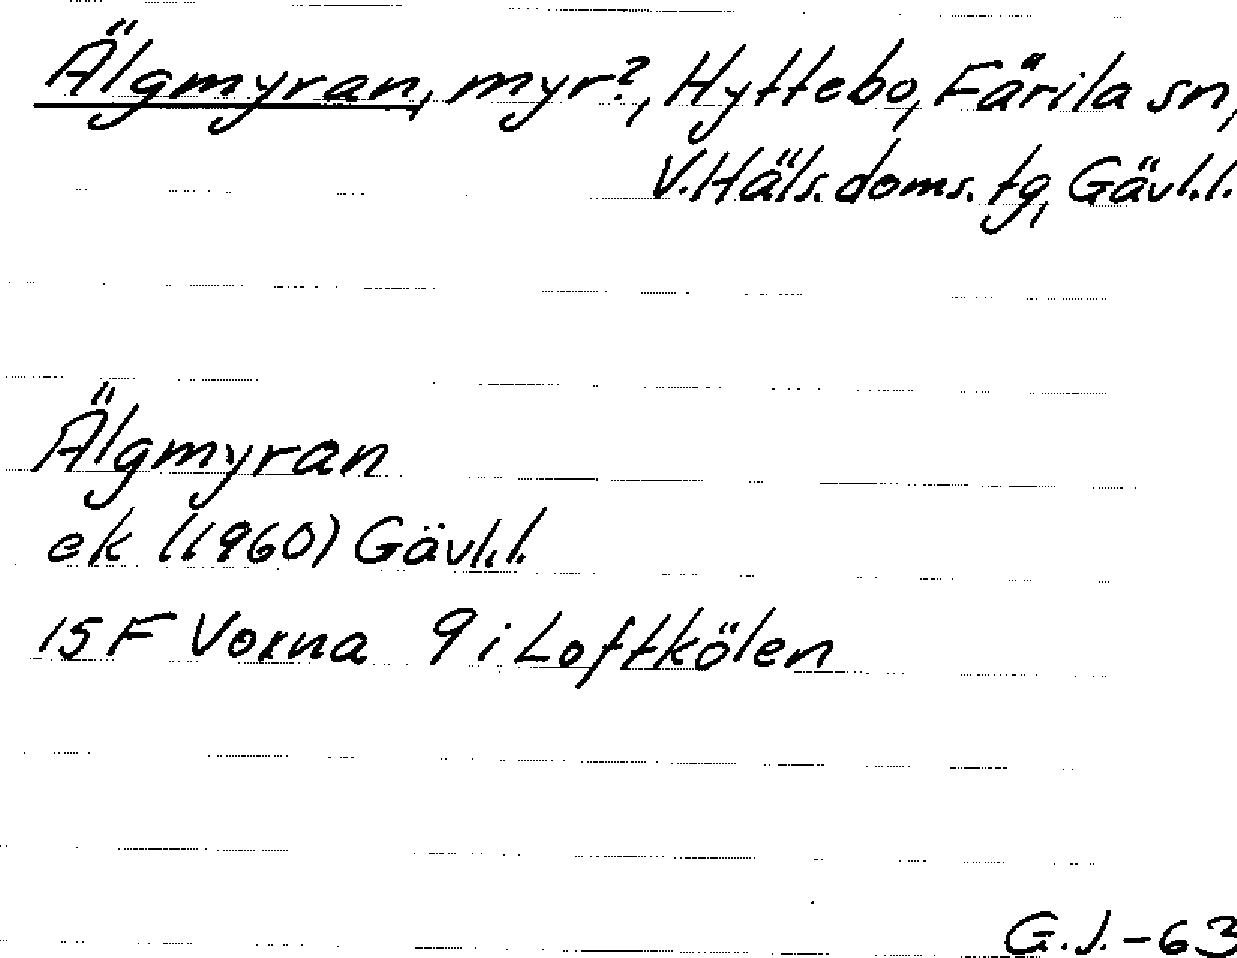 Älgmyran, myr?, Hyttebo, Färila sn,
V. Häls. doms. tg, Gävl.l.
Älgmyran
ek (1960) Gävl.l.
15 F Voxna 9 i Loftkölen
G.J.-63